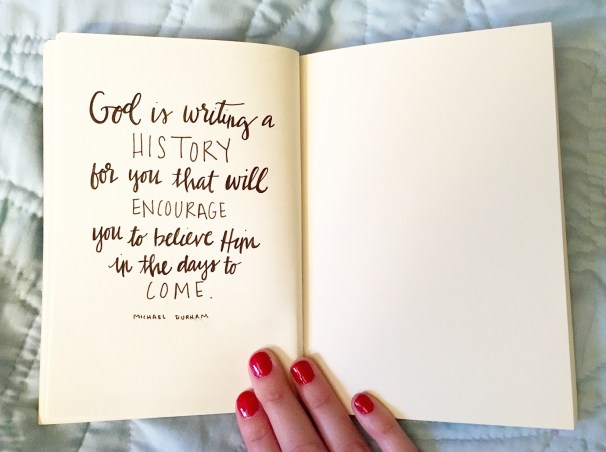 God is writing a
HISTORY
for you that will
ENCOURAGE
you to believe Him
in the days to
COME.
MICHAEL DURHAM